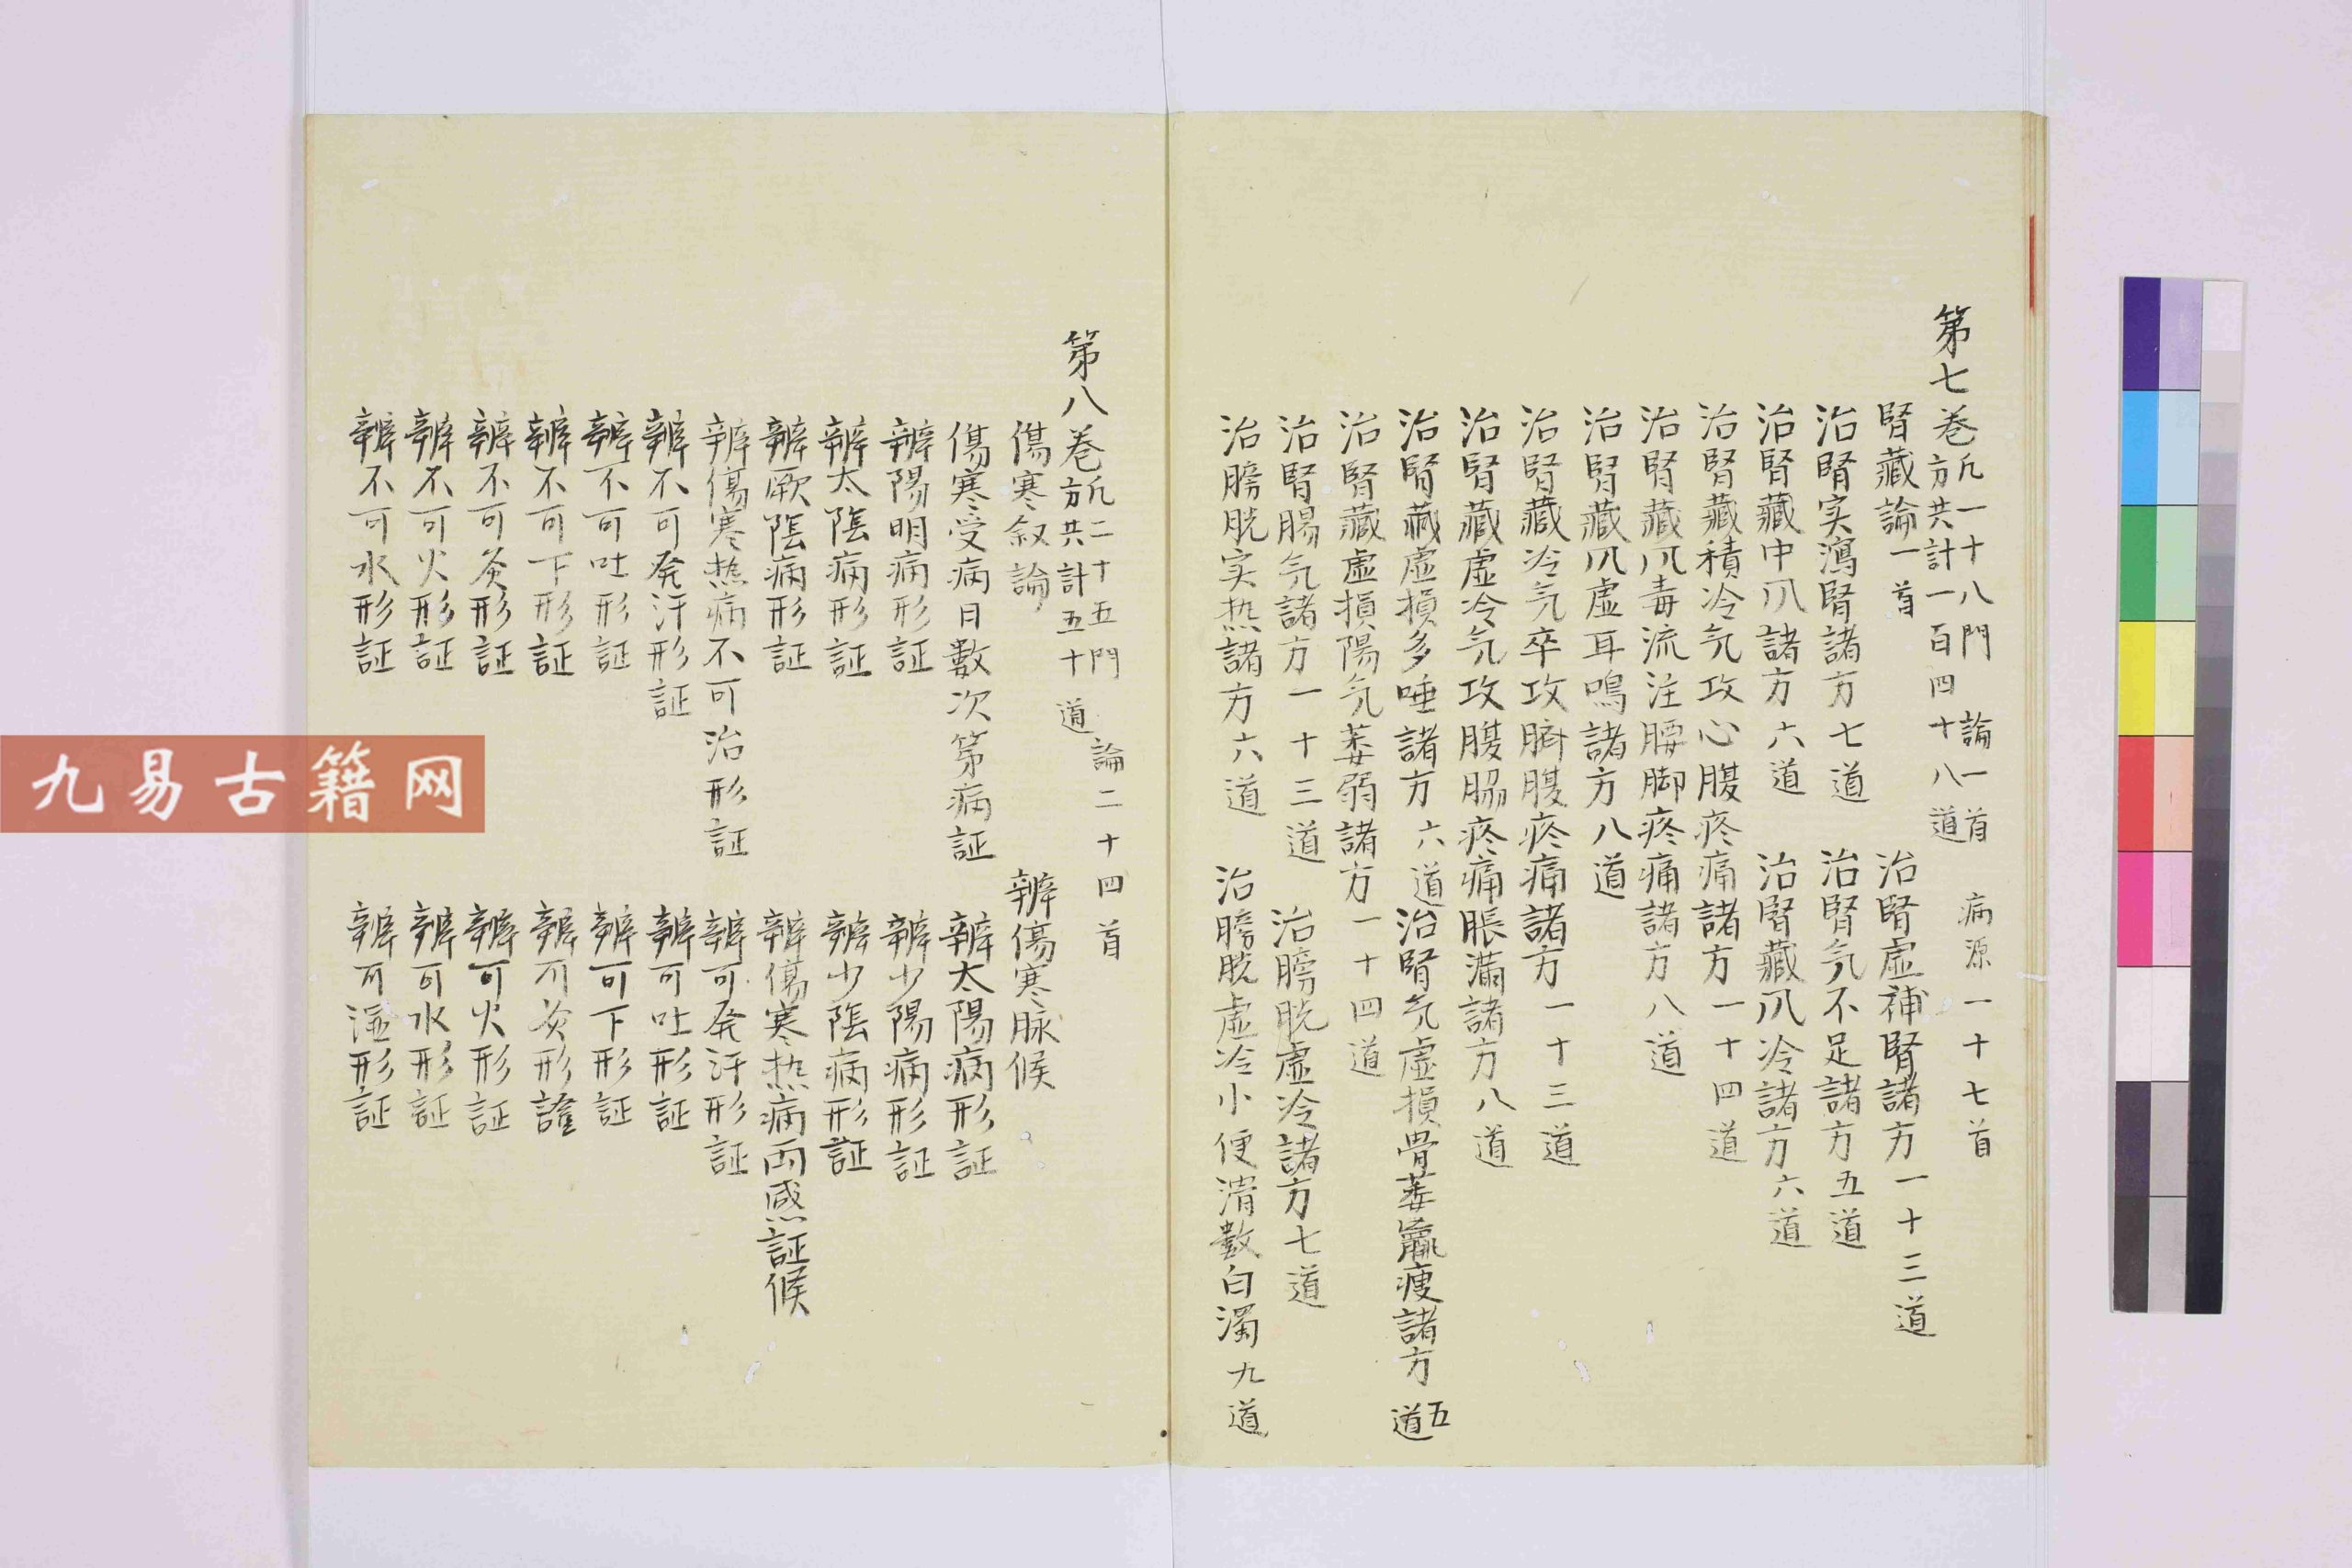 第七巻 凢一十八門 論一首 病源一十七首
方共計一百四十八道
腎藏論一首 治腎虚補腎諸方一十三道
治腎実瀉腎諸方七道 治腎气不足諸方五道
治腎藏中凨諸方六道 治腎藏凨冷諸方六道
治腎藏積冷気攻心腹疼痛諸方一十四道
治腎藏凨毒流注腰脚疼痛諸方八道
治腎藏凨虚耳鳴諸方八道
治腎藏冷気卒攻臍腹疼痛諸方一十三道
治腎藏虚冷気攻腹脇疼痛脹滿諸方八道
治腎藏虚損多唾諸方六道 治腎気虚損骨萎羸痩諸方五道
治腎藏虚損陽気萎弱諸方一十四道
治腎腸気諸方一十三道 治膀胱虚冷諸方七道
治膀胱実热諸方六道 治膀胱虚冷小便滑數白濁九道
第八巻 凢二十五門 論二十四首
方共計五十道
傷寒叙論 辨傷寒脉候
傷寒受病日數次第病証 辨太陽病形証
辨陽明病形証 辨少陽病形証
辨太陰病形証 辨少陰病形証
辨厥陰病形証 辨傷寒热病両感証候
辨傷寒热病不可治形証 辨可発汗形証
辨不可発汗形証 辨可吐形証
辨不可吐形証 辨可下形証
辨不可下形証 辨可灸形證
辨不可灸形証 辨可火形証
辨不可火形証 辨可水形証
辨不可水形証 辨可温形証
九易古籍网